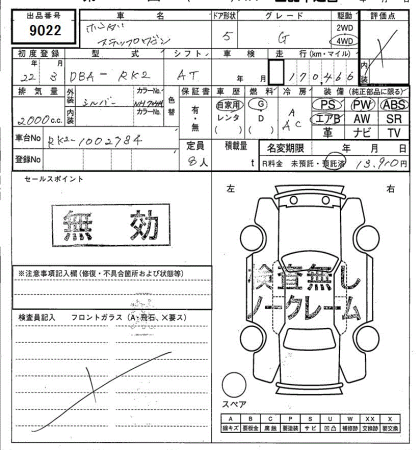 出品番号 車名 ドア形状 グレード 駆動 評価点
9022 ホンダ ステップワゴン 5 G 2WD 4WD
初度登録 型式 シフト 車検 走行(km・マイル) 内装
年 月 22 3 DBA-RK2 AT 年 月 170466
排気量 外装 カラーNo. 内装 カラーNo. 色替 保証書 車歴 燃料 冷房 装備(純正部品に限る)
2000cc シルバー 有・無 自家用 レンタ ( ) G・D ( ) A AC PS PW ABS
エアB AW SR
革 ナビ TV
車台No RK2-1002784 定員 8人 積載量 t
名変期限 年 月 日
登録No R料金 未預託・預託済 13,910円
セールスポイント 左 右
無効
検査無し
ノークレーム
※注意事項記入欄(修復・不具合箇所および状態等)
検査員記入 フロントガラス(A・飛石、×要ス)
スペア
A B C P S U W X XX
線キズ 要板金 腐蝕 要塗装 サビ 凹凸 補修跡 交換跡 要交換